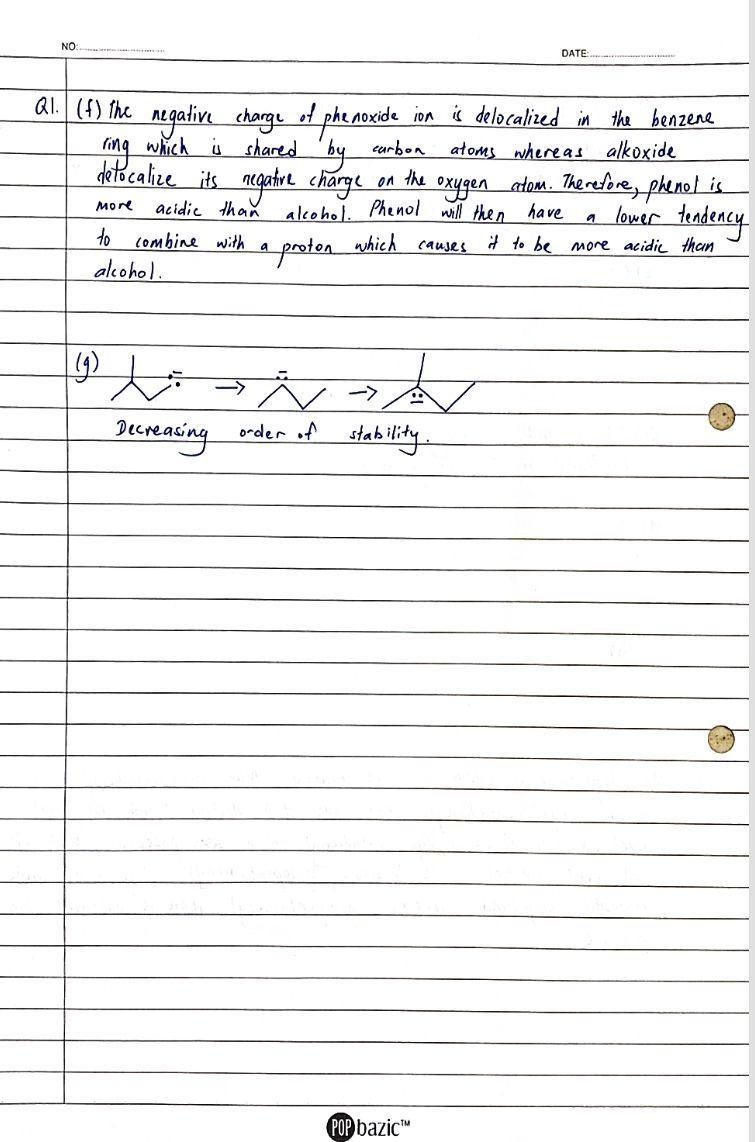 NO:
DATE:
Q1. (f) The negative charge of phenoxide ion is delocalized in the benzene
ring which is shared by carbon atoms whereas alkoxide
delocalize its negative charge on the oxygen atom. Therefore, phenol is
more acidic than alcohol. Phenol will then have a lower tendency
to combine with a proton which causes it to be more acidic than
alcohol.
(g)
Decreasing order of stability.
POP bazic™